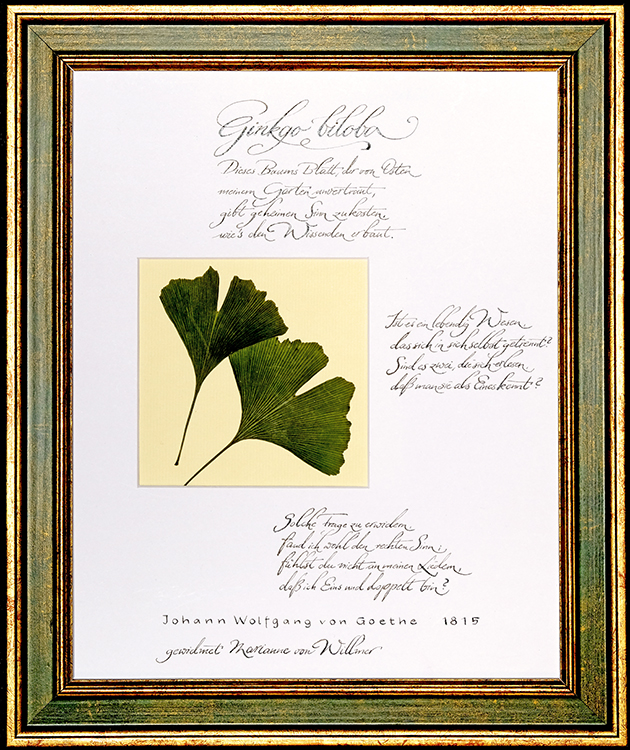 Ginkgo biloba
Dieses Baums Blatt, der von Osten
meinem Garten anvertraut,
gibt geheimen Sinn zu kosten,
wie's den Wissenden erbaut.
Ist es ein lebendig Wesen
das sich in sich selbst getrennt?
Sind es zwei, die sich erlesen,
daß man sie als Eines kennt?
Solche Frage zu erwidern
fand ich wohl den rechten Sinn;
fühlst du nicht an meinen Liedern,
daß ich Eins und doppelt bin?
Johann Wolfgang von Goethe 1815
gewidmet Marianne von Willmer